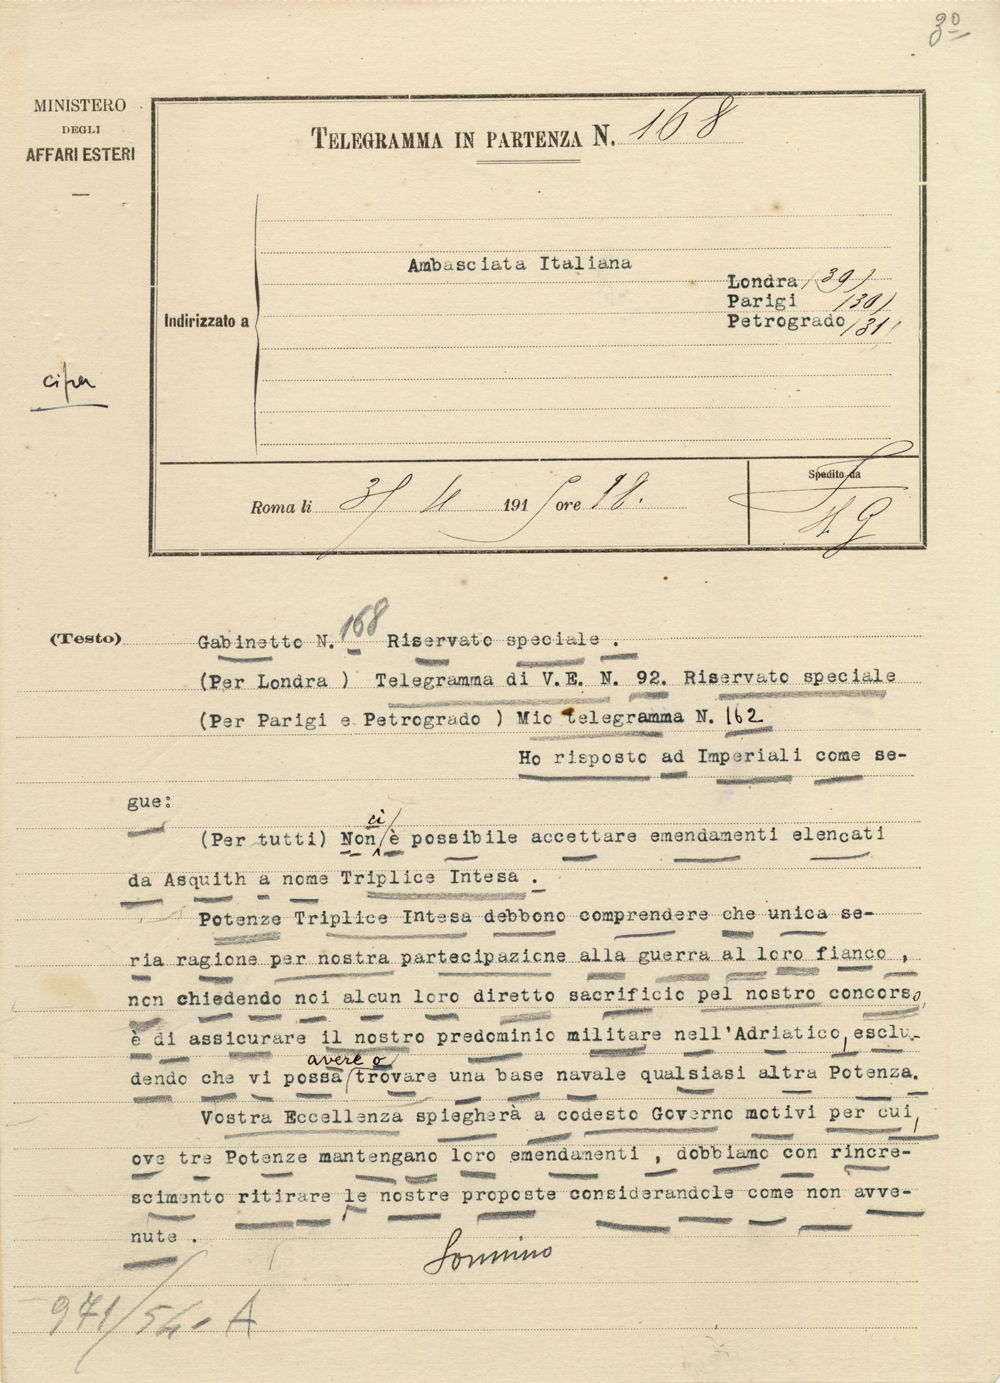 30
MINISTERO
DEGLI
AFFARI ESTERI
TELEGRAMMA IN PARTENZA N. 168
Ambasciata Italiana
Londra (39)
Parigi (30)
Petrogrado (31)
Indirizzato a
cifra
Spedito da
Roma li 3/4 1915 ore 18.
(Testo) Gabinetto N. 168 Riservato speciale .
(Per Londra ) Telegramma di V.E. N. 92. Riservato speciale
(Per Parigi e Petrogrado ) Mio telegramma N. 162
Ho risposto ad Imperiali come se-
gue:
(Per tutti) Non ci è possibile accettare emendamenti elencati
da Asquith a nome Triplice Intesa .
Potenze Triplice Intesa debbono comprendere che unica se-
ria ragione per nostra partecipazione alla guerra al loro fianco ,
non chiedendo noi alcun loro diretto sacrificio pel nostro concorso,
è di assicurare il nostro predominio militare nell'Adriatico, esclu-
dendo che vi possa avere o trovare una base navale qualsiasi altra Potenza.
Vostra Eccellenza spiegherà a codesto Governo motivi per cui,
ove tre Potenze mantengano loro emendamenti , dobbiamo con rincre-
scimento ritirare le nostre proposte considerandole come non avve-
nute .
Sonnino
971/54. A